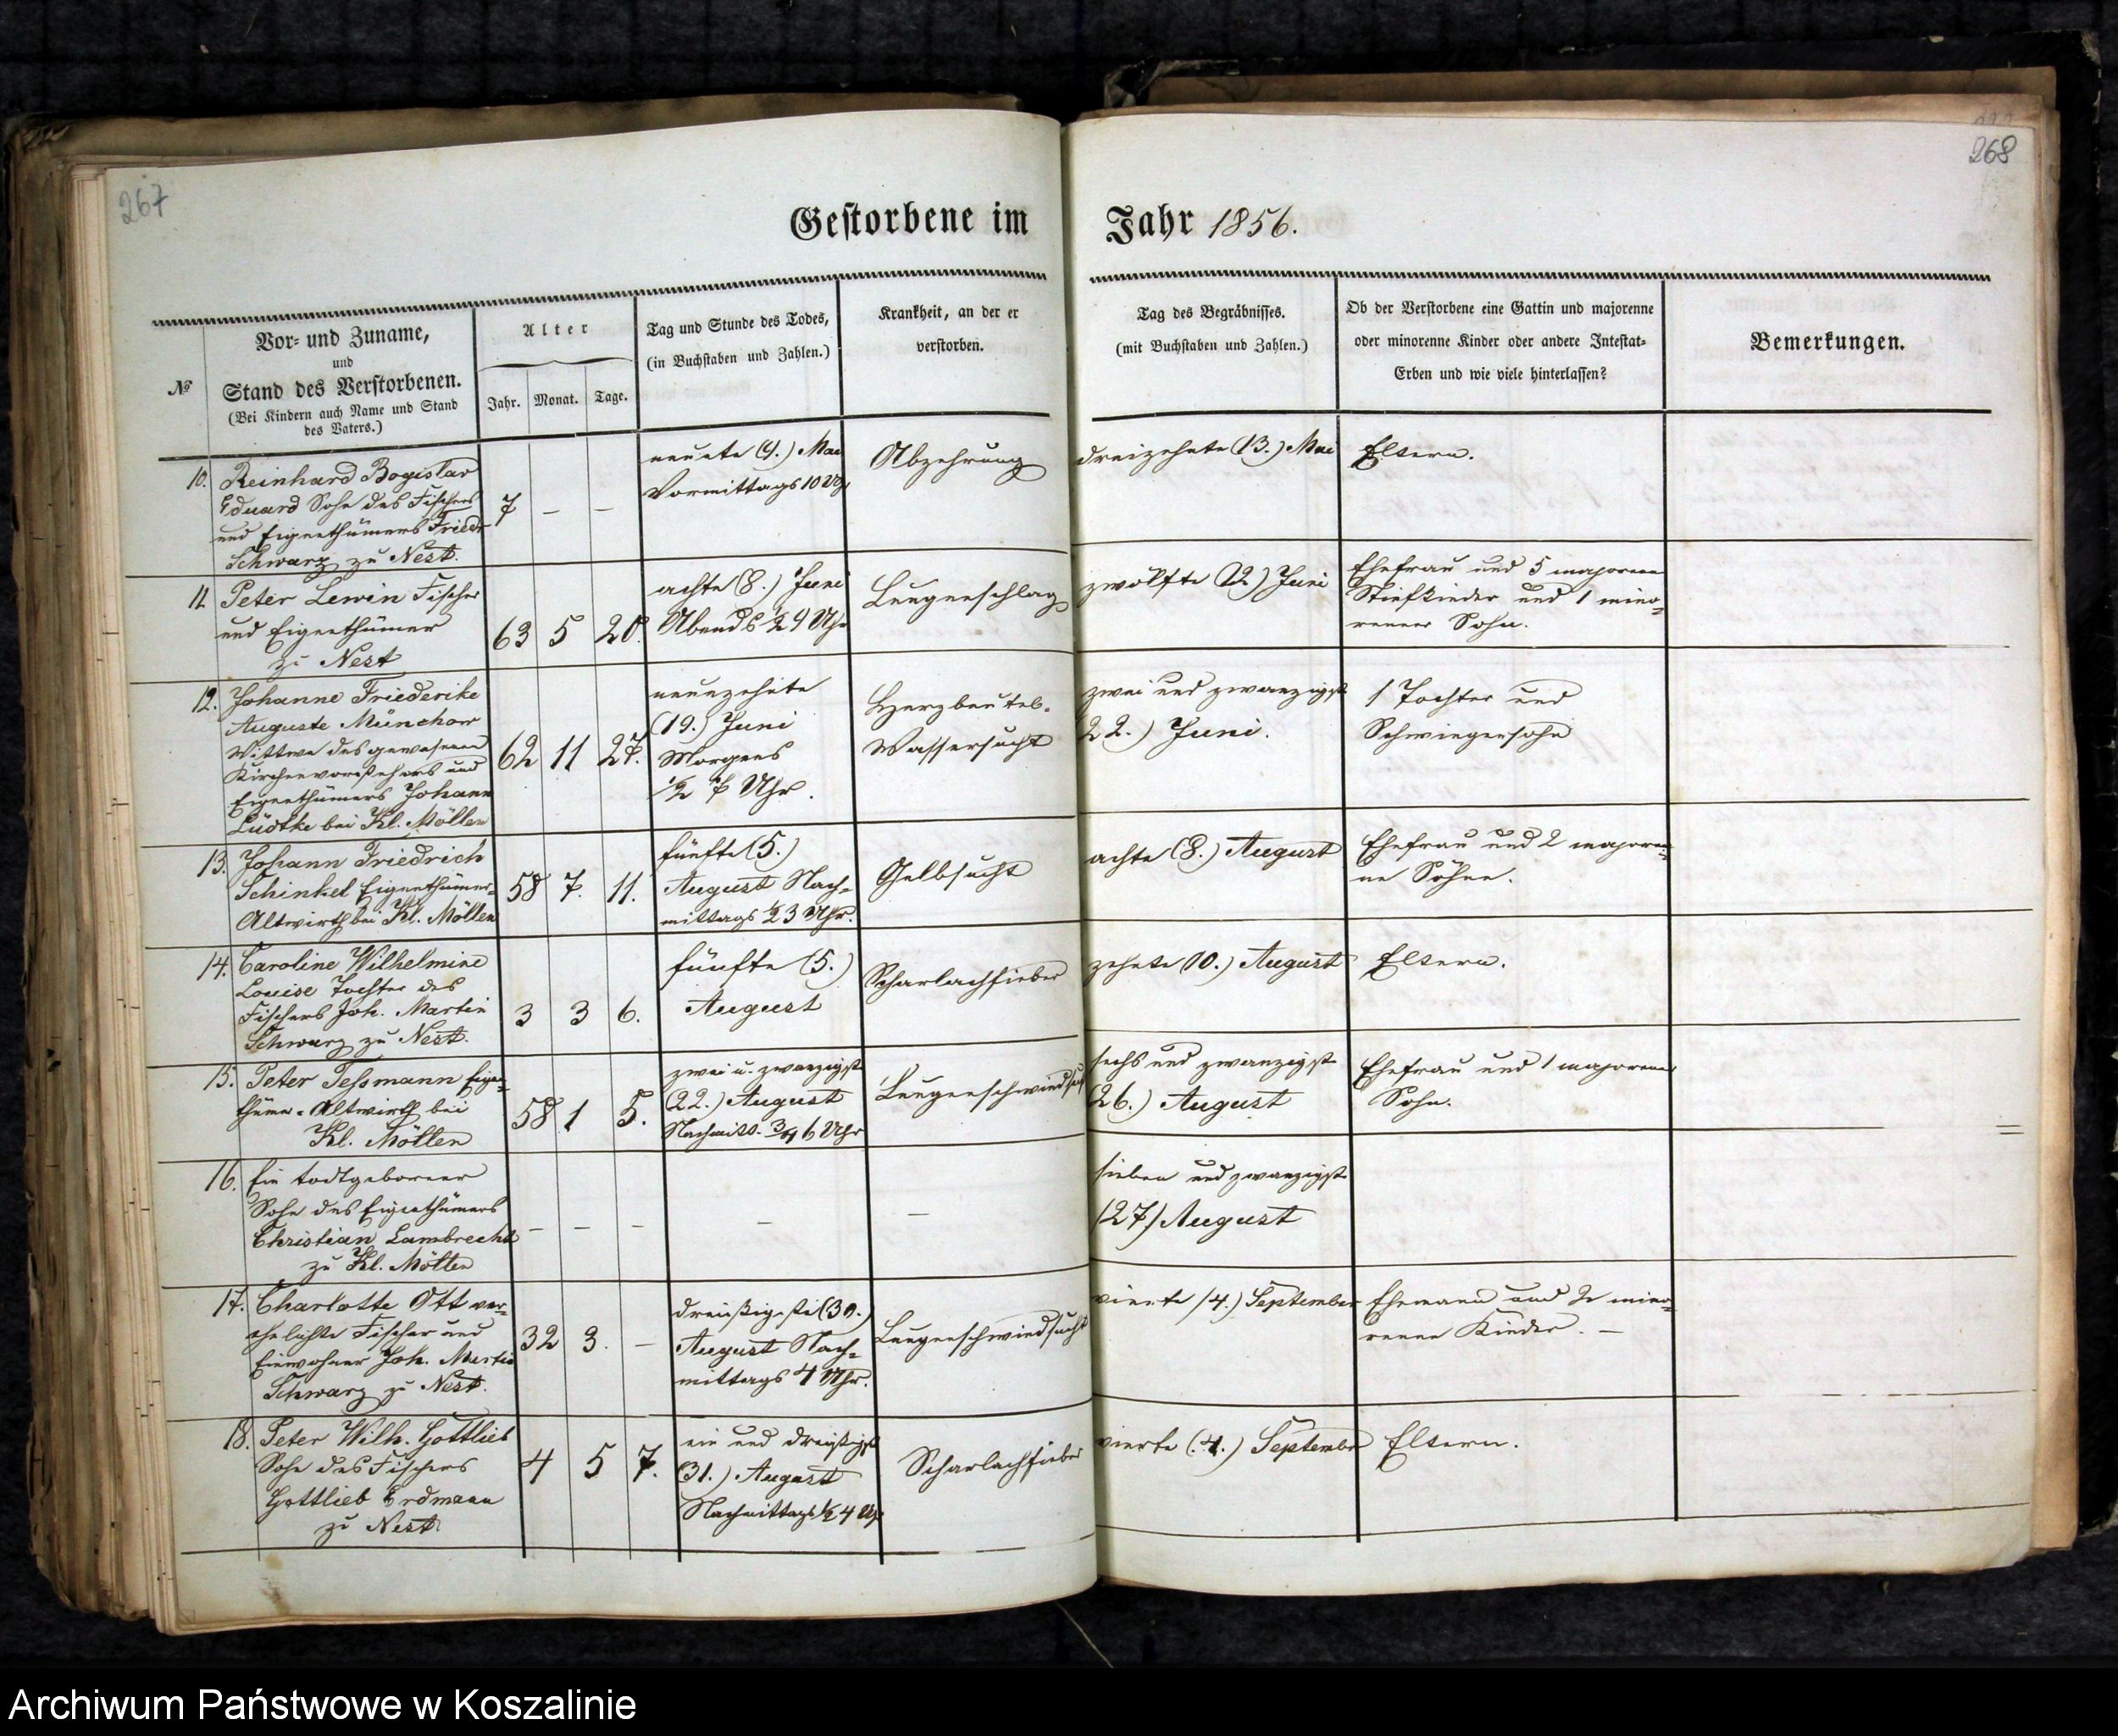 267
268
Gestorbene im Jahr 1856.
№
Vor- und Zuname,
und
Stand des Verstorbenen.
(Bei Kindern auch Name und Stand
des Vaters.)
Alter
Jahr. Monat. Tage.
Tag und Stunde des Todes,
(in Buchstaben und Zahlen.)
Krankheit, an der er
verstorben.
Tag des Begräbnisses.
(mit Buchstaben und Zahlen.)
Ob der Verstorbene eine Gattin und majorenne
oder minorenne Kinder oder andere Intestat-
Erben und wie viele hinterlassen?
Bemerkungen.
10. Reinhard Bogislav
Eduard Sohn des Fischers
und Eigenthümers Friedr
Schwarz zu Nest.
7 — —
neunte (9.) Mai
Vormittags 10 Uhr
Abzehrung
dreizehnte (13.) Mai
Eltern.
11. Peter Lewin Fischer
und Eigenthümer
zu Nest
63 5 20.
achte (8.) Juni
Abends ½ 9 Uhr
Lungenschlag
zwölfte (12.) Juni
Ehefrau und 5 majorenne
Stiefkinder und 1 mino-
renner Sohn.
12. Johanne Friederike
Auguste Münchow
Wittwe des gewesenen
Kirchenvorstehers und
Eigenthümers Johann
Lüdtke bei Kl. Möllen
62 11 27.
neunzehnte
(19.) Juni
Morgens
½ 7 Uhr.
Herzbeutel-
Wassersucht
zwei und zwanzigst
22.) Juni.
1 Tochter und
Schwiegersohn
13. Johann Friedrich
Schinkel Eigenthümer-
Altwirth bei Kl. Möllen
58 7. 11.
fünfte (5.)
August Nach-
mittags ½ 3 Uhr.
Gelbsucht
achte (8.) August
Ehefrau und 2 majoren-
ne Söhne.
14. Caroline Wilhelmine
Louise Tochter des
Fischers Joh. Martin
Schwarz zu Nest.
3 3 6.
fünfte (5.)
August
Scharlachfieber
zehnte (10.) August
Eltern.
15. Peter Tessmann Eigen-
thümer-Altwirth bei
Kl. Möllen
58 1 5.
zwei u. zwanzigst
(22.) August
Nachmitt. ¾ 6 Uhr
Lungenschwindsucht
sechs und zwanzigst
(26.) August
Ehefrau und 1 majorenner
Sohn.
16. Ein todtgeborener
Sohn des Eigenthümers
Christian Lambrecht
zu Kl. Möllen
— — — — —
sieben und zwanzigst
(27) August
17. Charlotte Ott ver-
ehelichte Fischer und
Einwohner Joh. Martin
Schwarz zu Nest.
32 3. —
dreißigste (30.)
August Nach-
mittags 4 Uhr.
Lungenschwindsucht
vierte (4.) September
Ehemann und 2 mino-
renne Kinder. —
18. Peter Wilh. Gottlieb
Sohn des Fischers
Gottlieb Erdmann
zu Nest.
4 5 7.
ein und dreißigst
(31.) August
Nachmittags ½ 4 Uhr
Scharlachfieber
vierte (4.) September
Eltern.
Archiwum Państwowe w Koszalinie